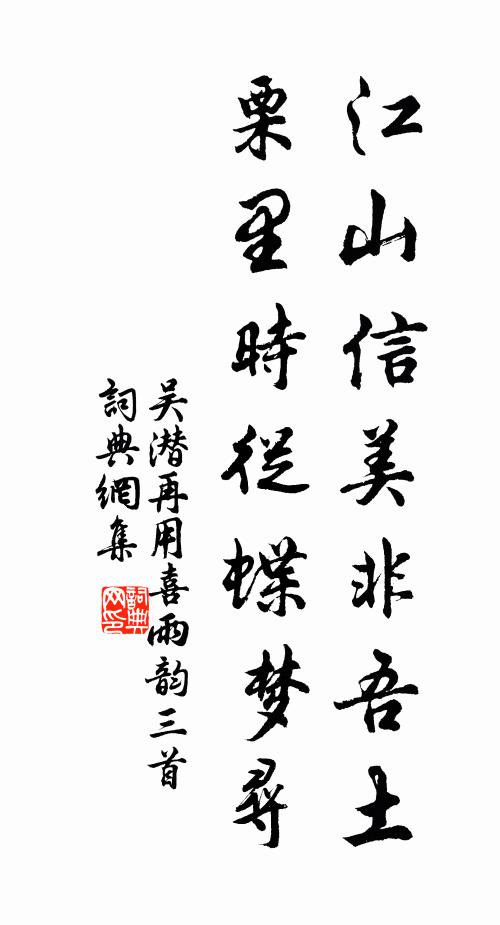 江山信美非吾土
栗里時從蝶梦尋
吴潜再用喜雨韵三首
詞典網集
詞典网印